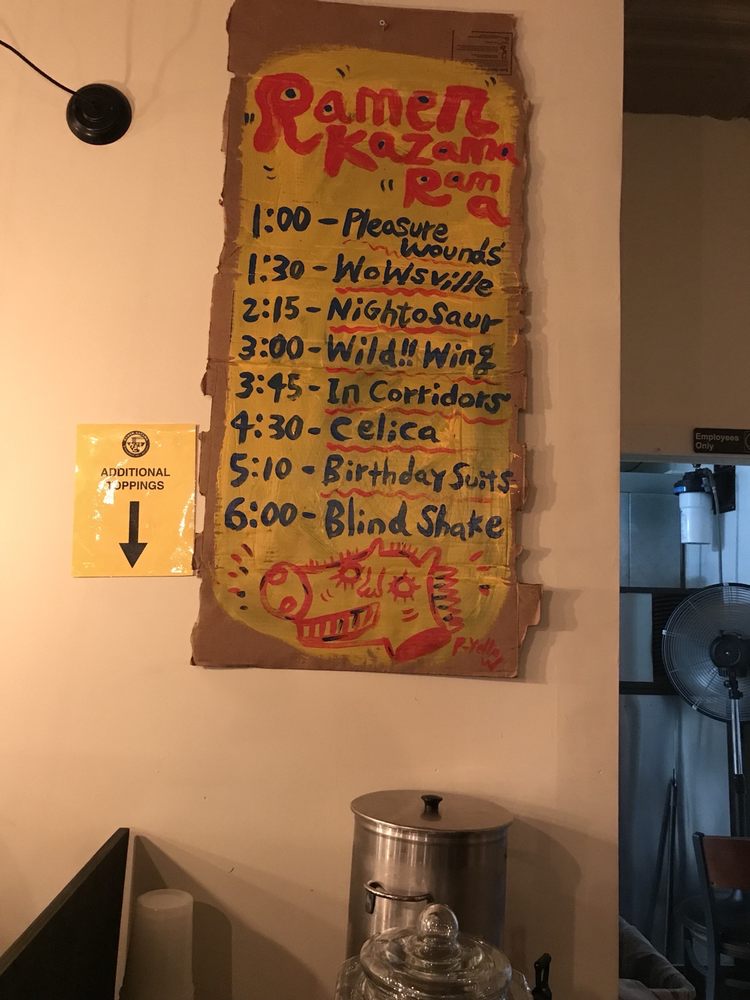 Ramen
Kazama
Rama
1:00 - Pleasure
Wounds
1:30 - WoWsville
2:15 - NiGhtoSaur
3:00 - Wild!! Wing
3:45 - In Corridors
4:30 - Celica
5:10 - Birthday Suits
6:00 - Blind Shake
ADDITIONAL
TOPPINGS
Employees
Only